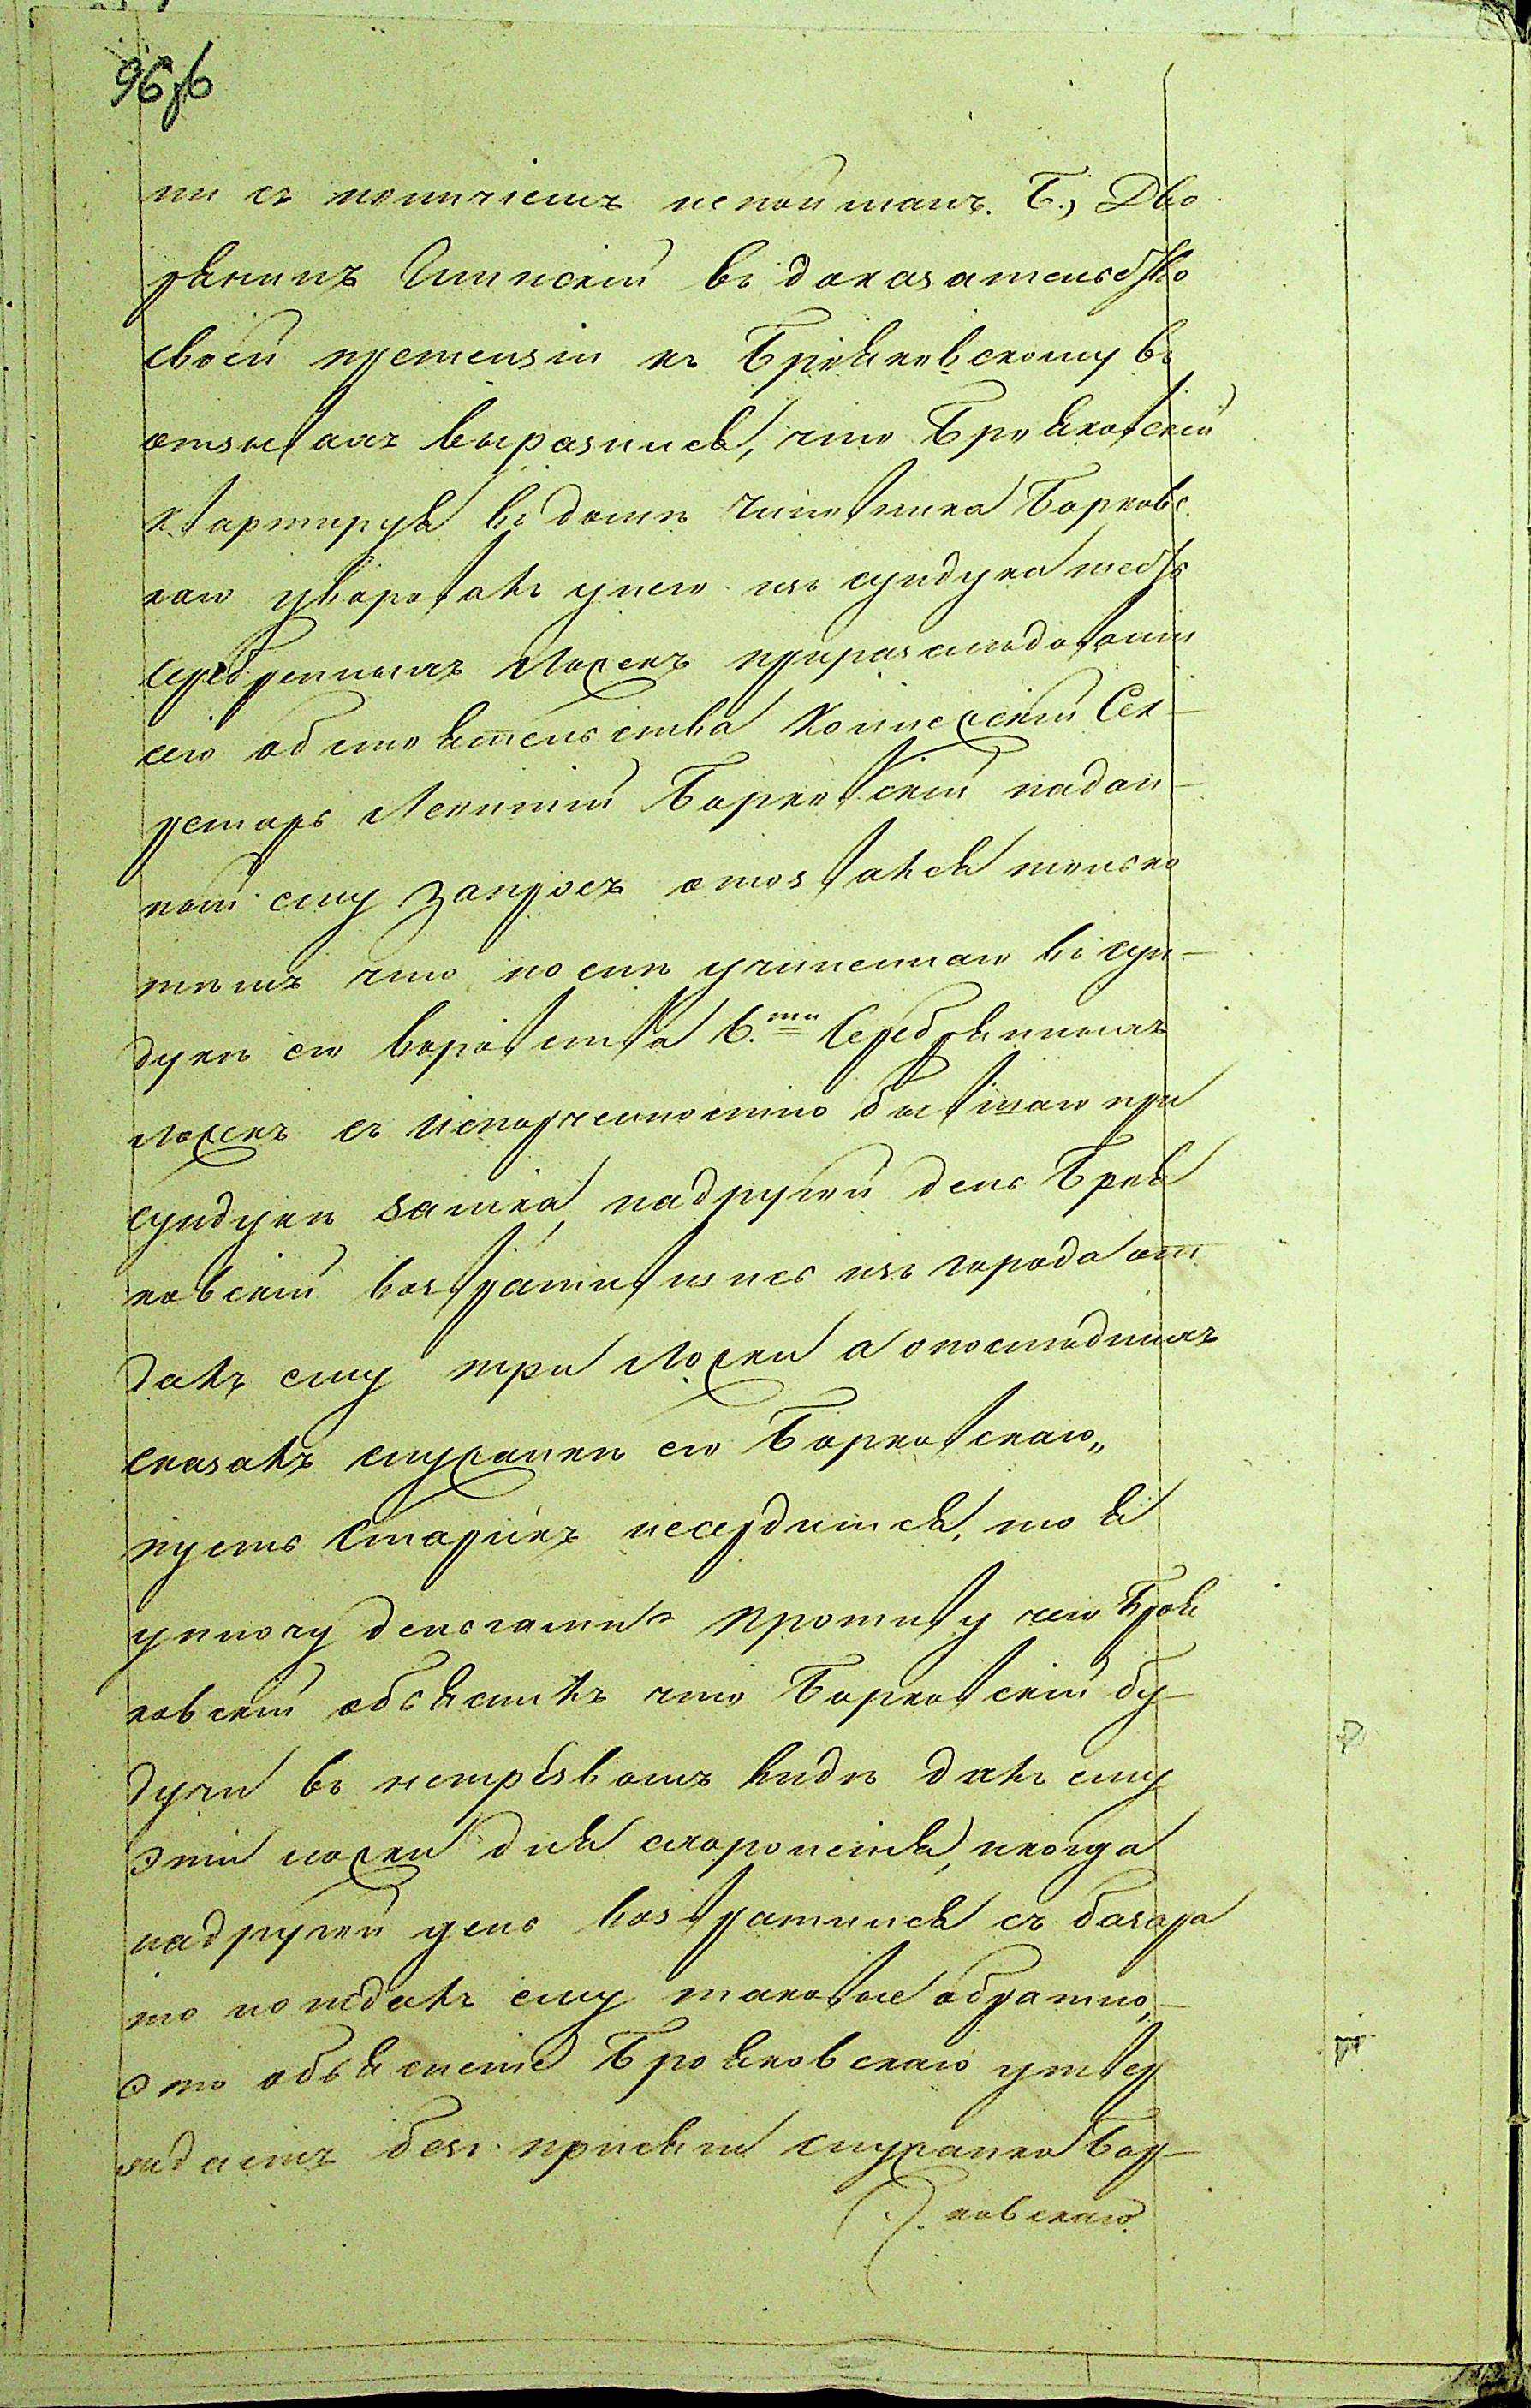 96об
ни съ поличіемъ непойманъ. Б., Дво
рянинъ Липскій въ доказательство
своей претензіи къ Брояковскому въ
отзывахъ выразился, что Брояковскій
квартируя въ домѣ чиновника Борковс
каго уворовалъ унего изъ сундука шесть
серебренныхъ Ложекъ приразслѣдованіи
сего обстоятельства Колежскій Сек-
ретарь Леонтій Борковскій надан-
ный ему запросъ отозвался только
тѣмъ что послѣ учиненнаго въ сун-
дукѣ его воровства 6.ти Серебрянныхъ
Ложекъ съ испорченностію бывшаго при
сундукѣ замка, надругой деньБроя
ковскій возвратившись изъ города от
далъ ему три Ложки а опослѣднихъ
сказалъ служанкѣ его Борковскаго,,
пусть Старикъ несердится, то я
уплочу деньгами" противу чего Броя
ковскій объяснилъ что Борковскій бу-
дучи въ нетрезвомъ видѣ далъ ему
эти ложки для схороненія, икогда
надругой день возвратился съ базара
то поотдалъ ему таковые обратно,-
это объясненіе Брояковскаго утвер
ждаетъ безъ присяги служанка Бор-
ковскаго